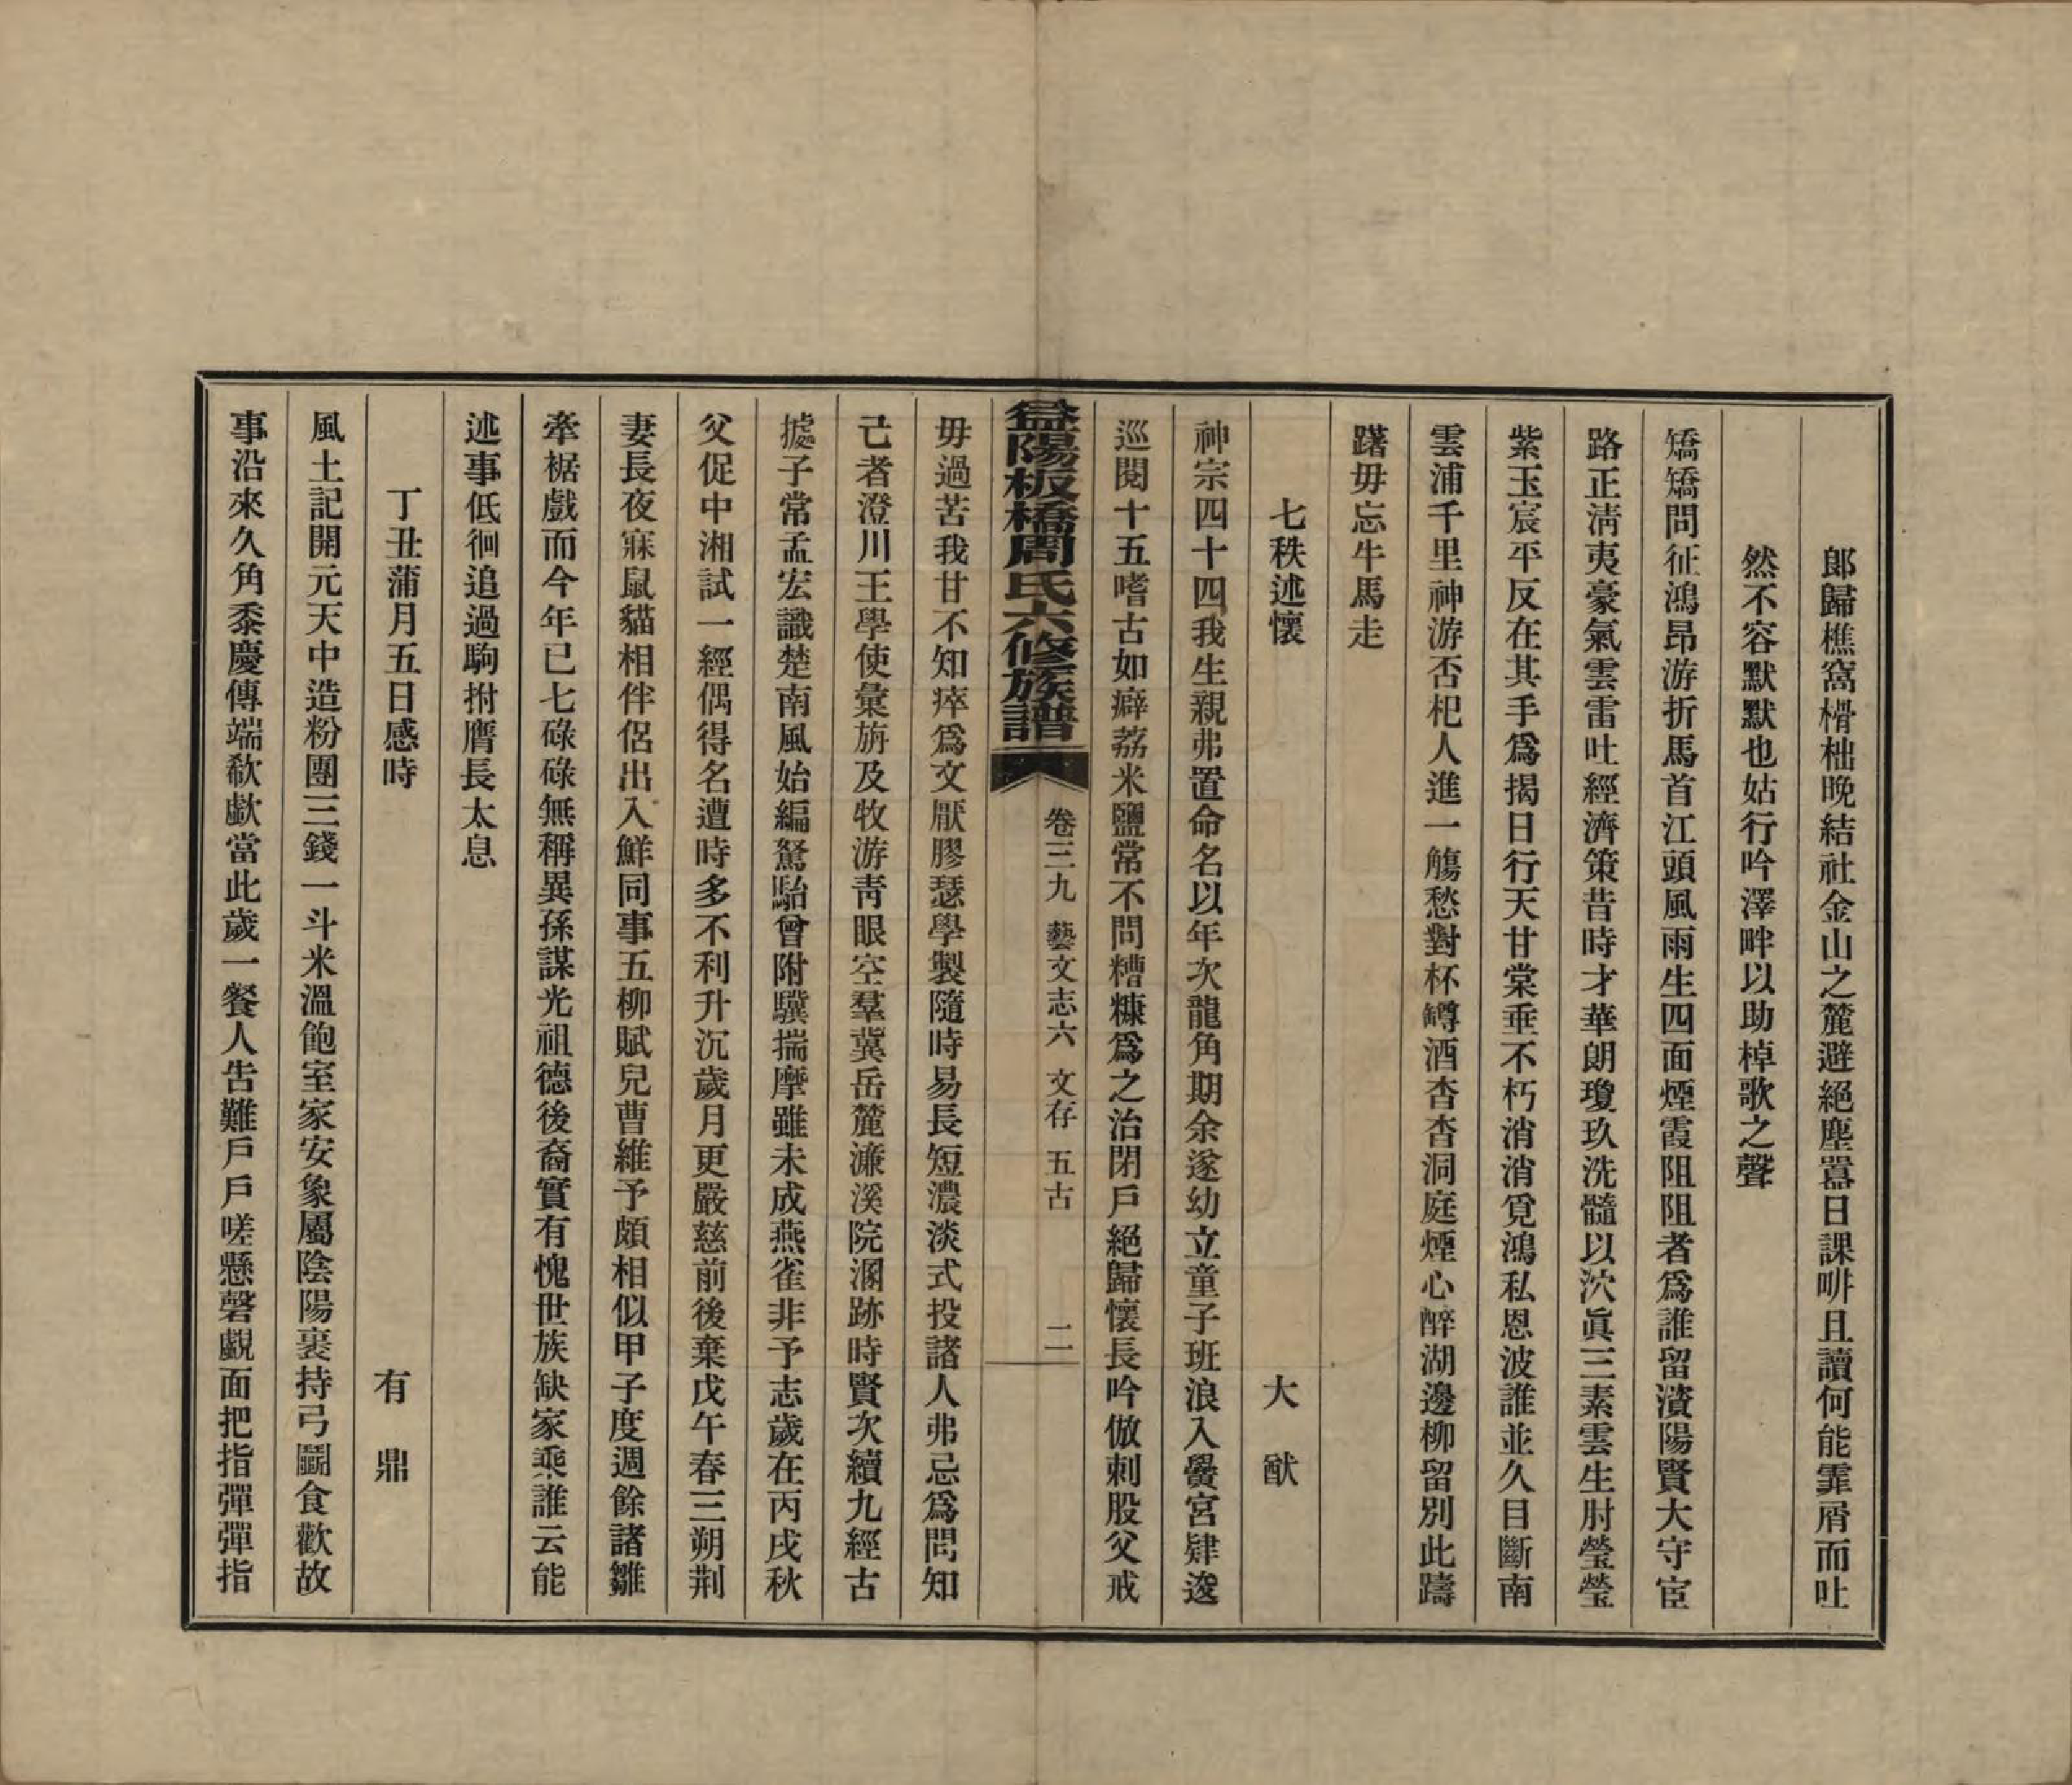 郞歸樵窩榾柮晚結社金山之麓避絕塵囂日課畊且讀何能霏屑而吐
然不容默默也姑行吟澤畔以助棹歌之聲
矯矯問征鴻昂游折馬首江頭風雨生四面煙霞阻阻者爲誰留濱陽賢大守宦
路正淸夷豪氣雲雷吐經濟策昔時才華朗瓊玖洗髓以泬眞三素雲生肘瑩瑩
紫玉宸平反在其手爲揭日行天甘棠垂不朽消消覓鴻私恩波誰並久目斷南
雲浦千里神游否杞人進一觴愁對杯罇酒杳杳洞庭煙心醉湖邊柳留別此躊
躇毋忘牛馬走
七秩述懷　大猷
神宗四十四我生親弗置命名以年次龍角期余遂幼立童子班浪入黌宮肄逡
巡閱十五嗜古如癖荔米鹽常不問糟糠爲之治閉戶絕歸懷長吟倣刺股父戒
益陽板橋周氏六修族譜　卷三九　藝文志六　文存　五古　二
毋過苦我甘不知瘁爲文厭膠瑟學製隨時易長短濃淡式投諸人弗忌爲問知
己者澄川王學使彙旃及牧游靑眼空羣冀岳麓濂溪院溷跡時賢次續九經古
據子常孟宏識楚南風始編駑駘曾附驥揣摩雖未成燕雀非予志歲在丙戌秋
父促中湘試一經偶得名遭時多不利升沉歲月更嚴慈前後棄戊午春三朔荆
妻長夜寐鼠貓相伴侶出入鮮同事五柳賦兒曹維予頗相似甲子度週餘諸雛
牽裾戲而今年已七碌碌無稱異孫謀光祖德後裔實有愧世族缺家乘誰云能
述事低徊追過駒拊膺長太息
丁丑蒲月五日感時　有鼎
風土記開元天中造粉團三錢一斗米溫飽室家安象屬陰陽裹持弓鬭食歡故
事沿來久角黍慶傳端欷歔當此歲一餐人吿難戶戶嗟懸磬覷面把指彈彈指